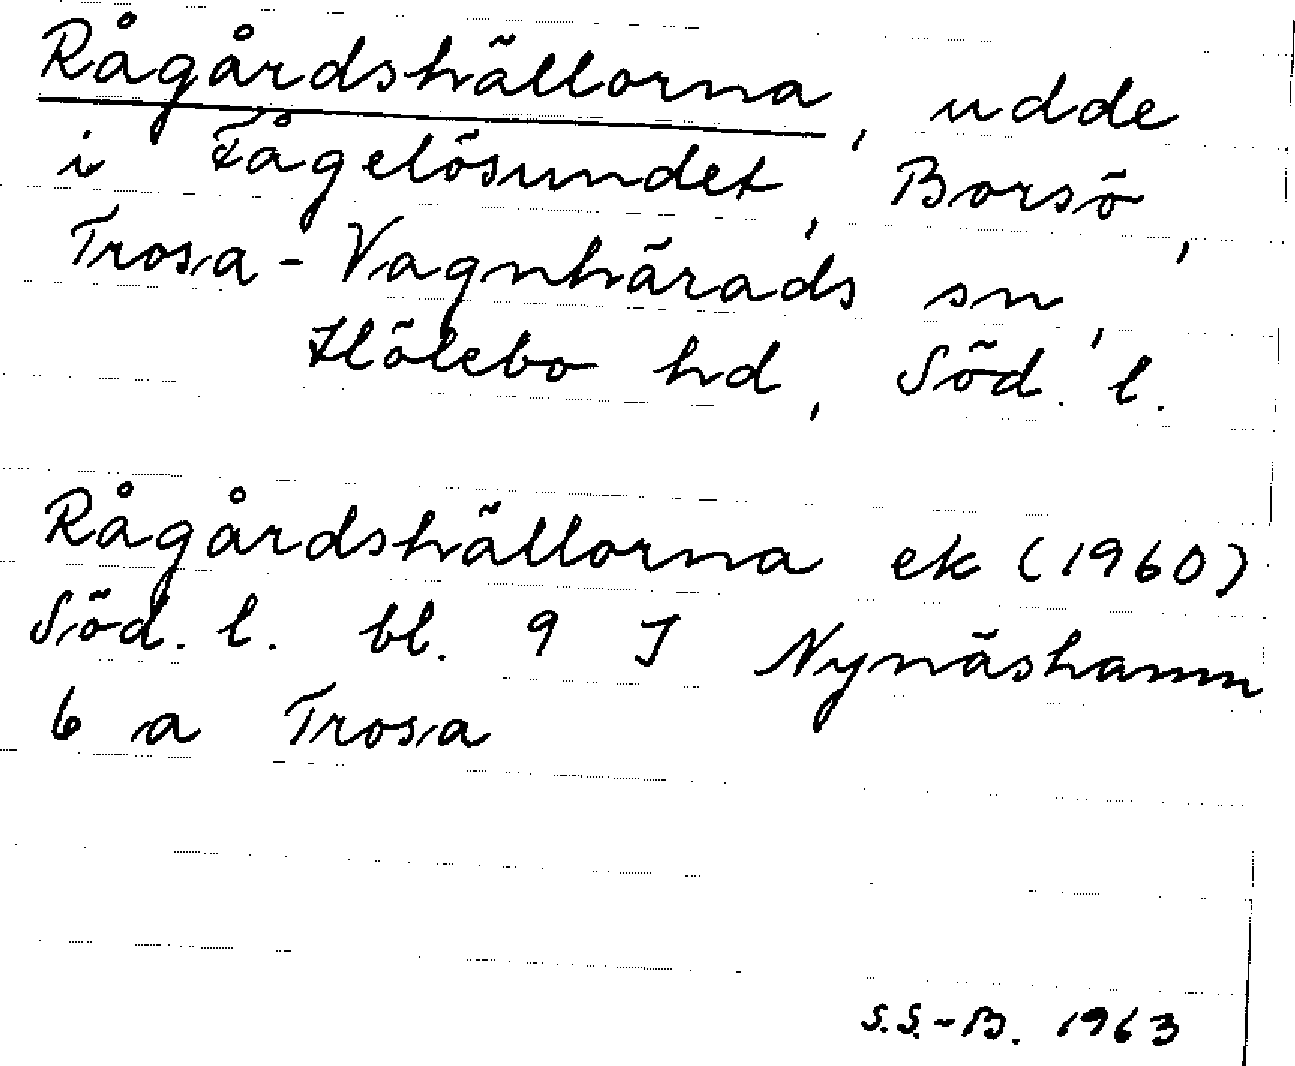 Rågårdshällorna, udde
i Fågelösundet, Borsö,
Trosa-Vagnhärads sn,
Hölebo hd, Söd. l.
Rågårdshällorna ek (1960)
Söd. l. bl. 9 I Nynäshamn
6 a Trosa
S.S.-B. 1963